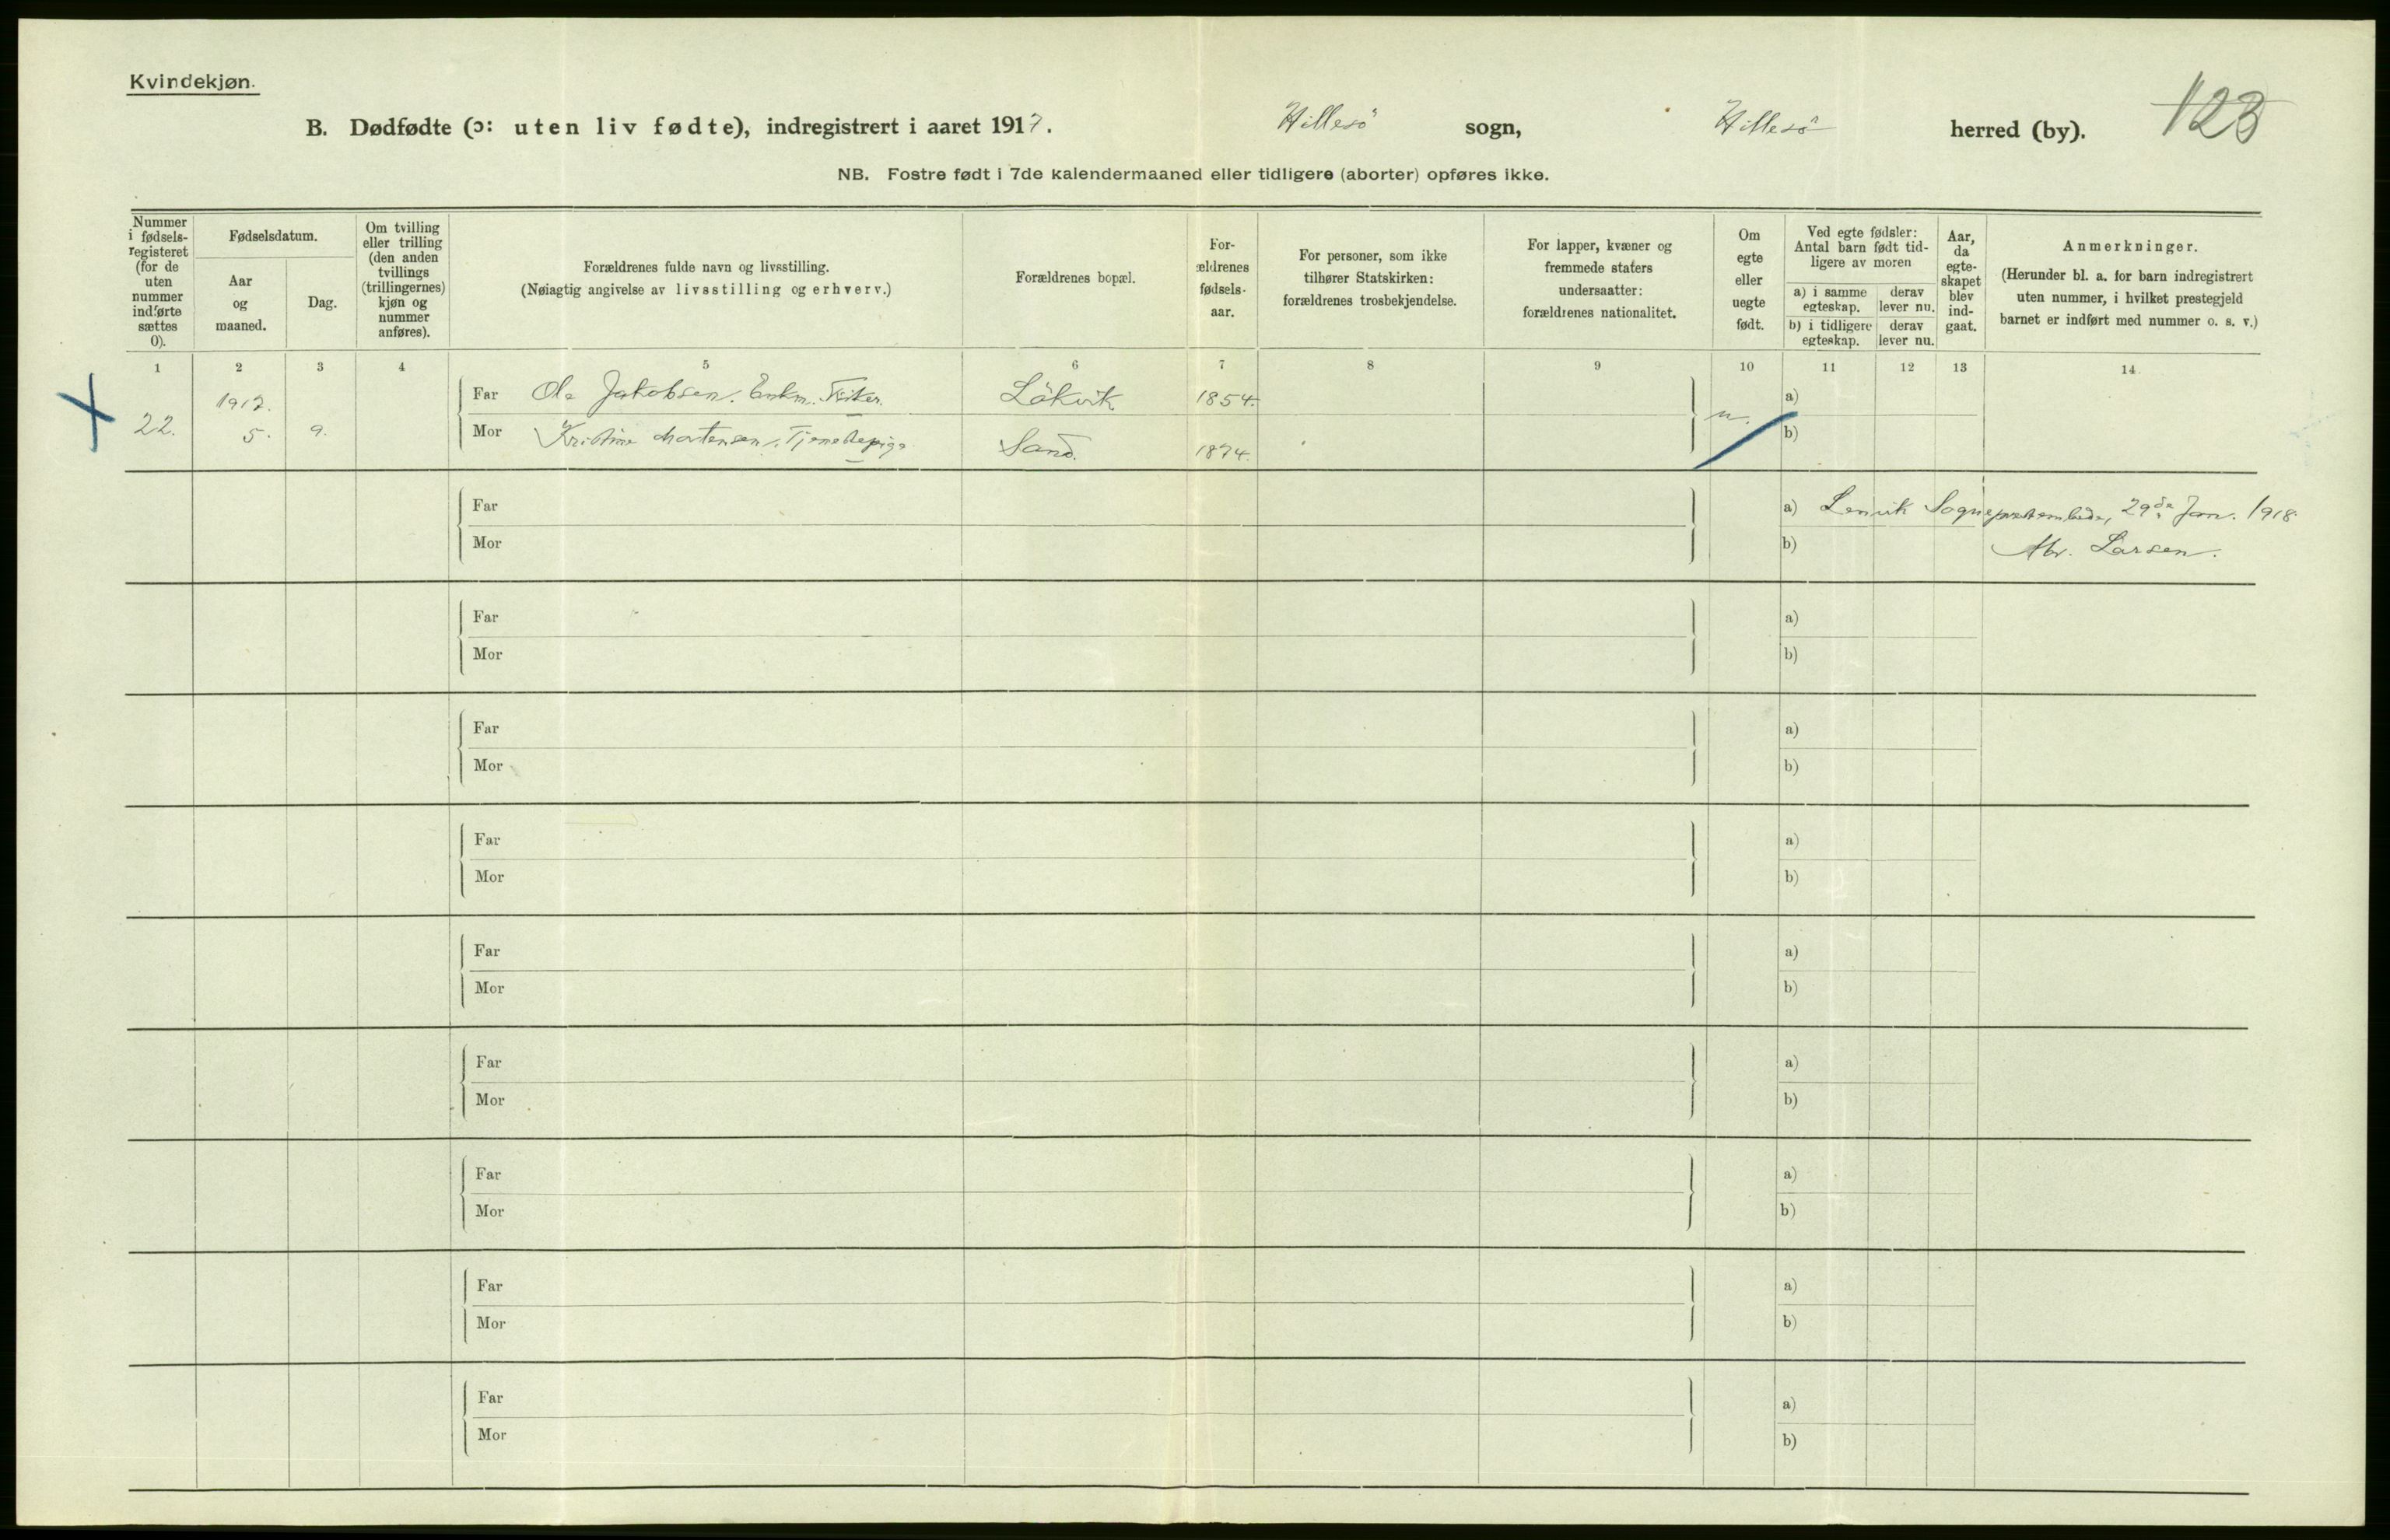 Kvindekjøn.
123
B. Dødfødte (ɔ: uten liv fødte), indregistrert i aaret 1917. Hillesö sogn, Hillesö herred (by).
NB. Fostre født i 7de kalendermaaned eller tidligere (aborter) opføres ikke.
Nummer i fødsels-registeret (for de uten nummer indførte sættes 0).
Fødselsdatum.
Aar og maaned.
Dag.
Om tvilling eller trilling (den anden tvillings (trillingernes) kjøn og nummer anføres).
Forældrenes fulde navn og livsstilling.
(Nøiagtig angivelse av livsstilling og erhverv.)
Forældrenes bopæl.
For-ældrenes fødsels-aar.
For personer, som ikke tilhører Statskirken: forældrenes trosbekjendelse.
For lapper, kvæner og fremmede staters undersaatter: forældrenes nationalitet.
Om egte eller uegte født.
Ved egte fødsler: Antal barn født tid-ligere av moren
a) i samme egteskap.
derav lever nu.
b) i tidligere egteskap.
derav lever nu.
Aar, da egte-skapet blev ind-gaat.
Anmerkninger.
(Herunder bl. a. for barn indregistrert uten nummer, i hvilket prestegjeld barnet er indført med nummer o. s. v.)
1 2 3 4 5 6 7 8 9 10 11 12 13 14
1917. Far Ole Jakobsen. Enkm. Fisker. Lökvik 1854. a)
22. 5. 9. Mor Kristine Mortensen. Tjenestepige Sand. 1874. u. b)
Far a) Lenvik Sogneprestembede, 29de Jan. 1918
Mor b) Larsen.
Far a)
Mor b)
Far a)
Mor b)
Far a)
Mor b)
Far a)
Mor b)
Far a)
Mor b)
Far a)
Mor b)
Far a)
Mor b)
Far a)
Mor b)